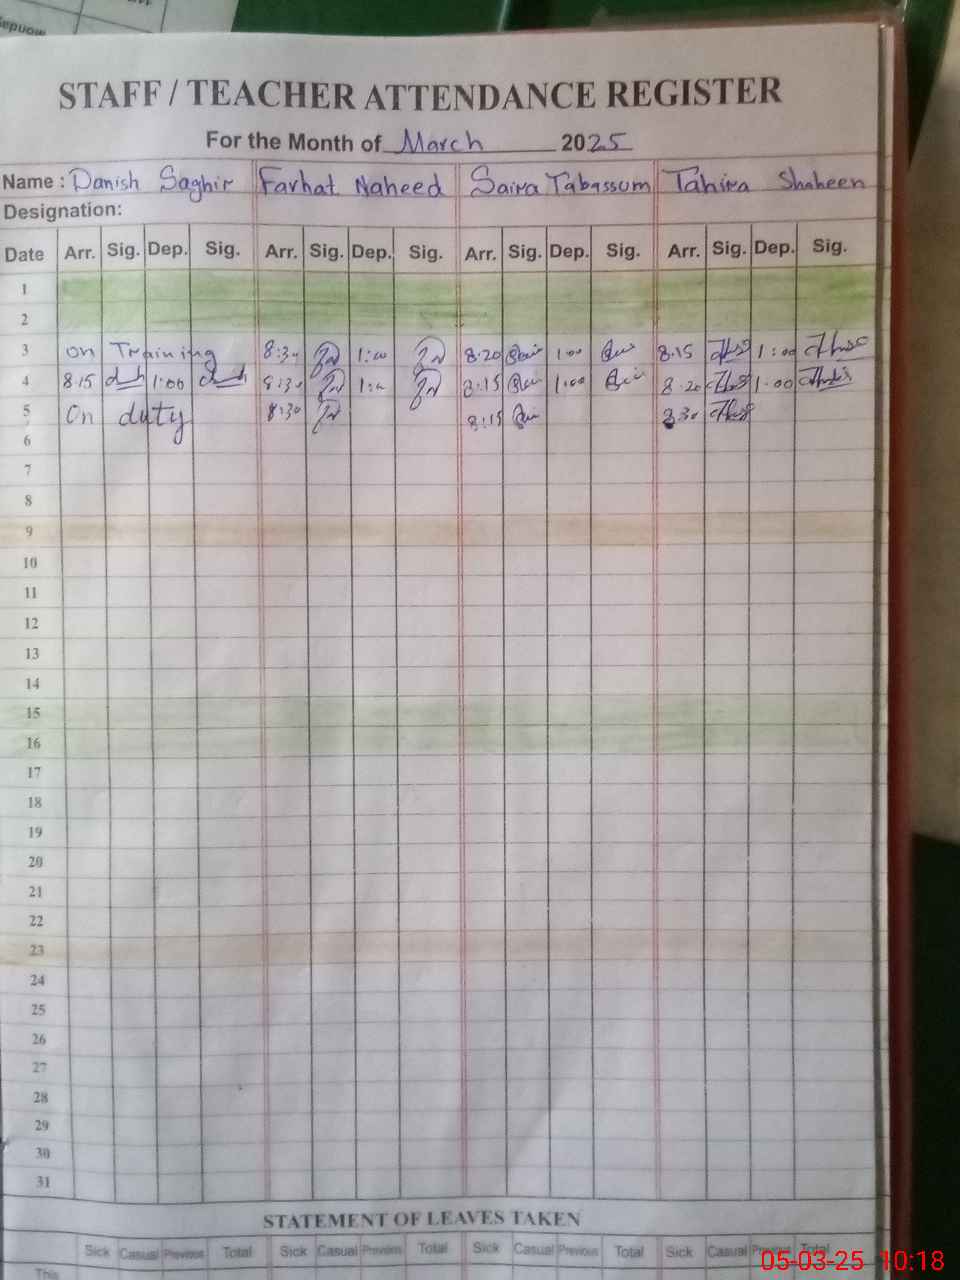 STAFF / TEACHER ATTENDANCE REGISTER
For the Month of March 2025
Name : Danish Saghir Farhat Naheed Saira Tabassum Tahira Shaheen
Designation:
Date Arr. Sig. Dep. Sig. Arr. Sig. Dep. Sig. Arr. Sig. Dep. Sig. Arr. Sig. Dep. Sig.
1
2
3 on Training 8:30 1:00 8.20 1.00 8.15 1:00
4 8.15 1.00 8:30 1:00 8:15 1.00 8.20 1.00
5 On duty 8:30 8:15 8.30
6
7
8
9
10
11
12
13
14
15
16
17
18
19
20
21
22
23
24
25
26
27
28
29
30
31
STATEMENT OF LEAVES TAKEN
Sick Casual Previous Total Sick Casual Previous Total Sick Casual Previous Total Sick Casual
This
05-03-25 10:18